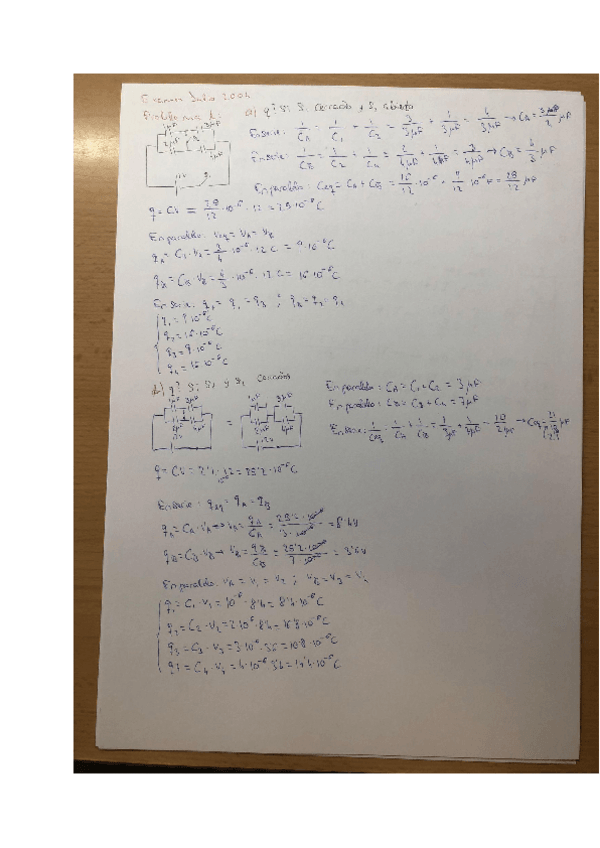 Examen Julio 2004
Problema 1:
a) q? si S₁ cerrado y S₂ abierto
1μF 3μF
2μF 4μF
12V
En serie: 1/C_A = 1/C₁ + 1/C₃ = 3/3μF + 1/3μF = 4/3μF → C_A = 3/4 μF
En serie: 1/C_B = 1/C₂ + 1/C₄ = 2/4μF + 1/4μF = 3/4μF → C_B = 4/3 μF
En paralelo: Ceq = C_A + C_B = 28/12 μF
q = C·V = 28/12 · 10⁻⁶ · 12 = 28·10⁻⁶ C
En paralelo: Veq = V_A = V_B
q_A = C_A · V_A = 3/4 · 10⁻⁶ · 12 C = 9·10⁻⁶ C
q_B = C_B · V_B = 4/3 · 10⁻⁶ · 12 C = 16·10⁻⁶ C
En serie: q_A = q₁ = q₃ ; q_B = q₂ = q₄
q₁ = 9·10⁻⁶ C
q₂ = 16·10⁻⁶ C
q₃ = 9·10⁻⁶ C
q₄ = 16·10⁻⁶ C
b) q? Si S₁ y S₂ cerrados
1μF 3μF
2μF 4μF
12V
=
En paralelo: C_A = C₁ + C₂ = 3μF
En paralelo: C_B = C₃ + C₄ = 7μF
En serie: 1/Ceq = 1/C_A + 1/C_B = 1/3μF + 1/7μF = 10/21μF → Ceq =
q = C·V = 2'1 · 12 = 25'2·10⁻⁶ C
En serie: qeq = q_A = q_B
q_A = C_A · V_A → V_A = q_A/C_A = 25'2·10⁻⁶/3·10⁻⁶ = 8'4V
q_B = C_B · V_B → V_B = q_B/C_B = 25'2·10⁻⁶/7·10⁻⁶ = 3'6V
En paralelo: V_A = V₁ = V₂ ; V_B = V₃ = V₄
q₁ = C₁ · V₁ = 10⁻⁶ · 8'4 = 8'4·10⁻⁶ C
q₂ = C₂ · V₂ = 2·10⁻⁶ · 8'4 = 16'8·10⁻⁶ C
q₃ = C₃ · V₃ = 3·10⁻⁶ · 3'6 = 10'8·10⁻⁶ C
q₄ = C₄ · V₄ = 4·10⁻⁶ · 3'6 = 14'4·10⁻⁶ C